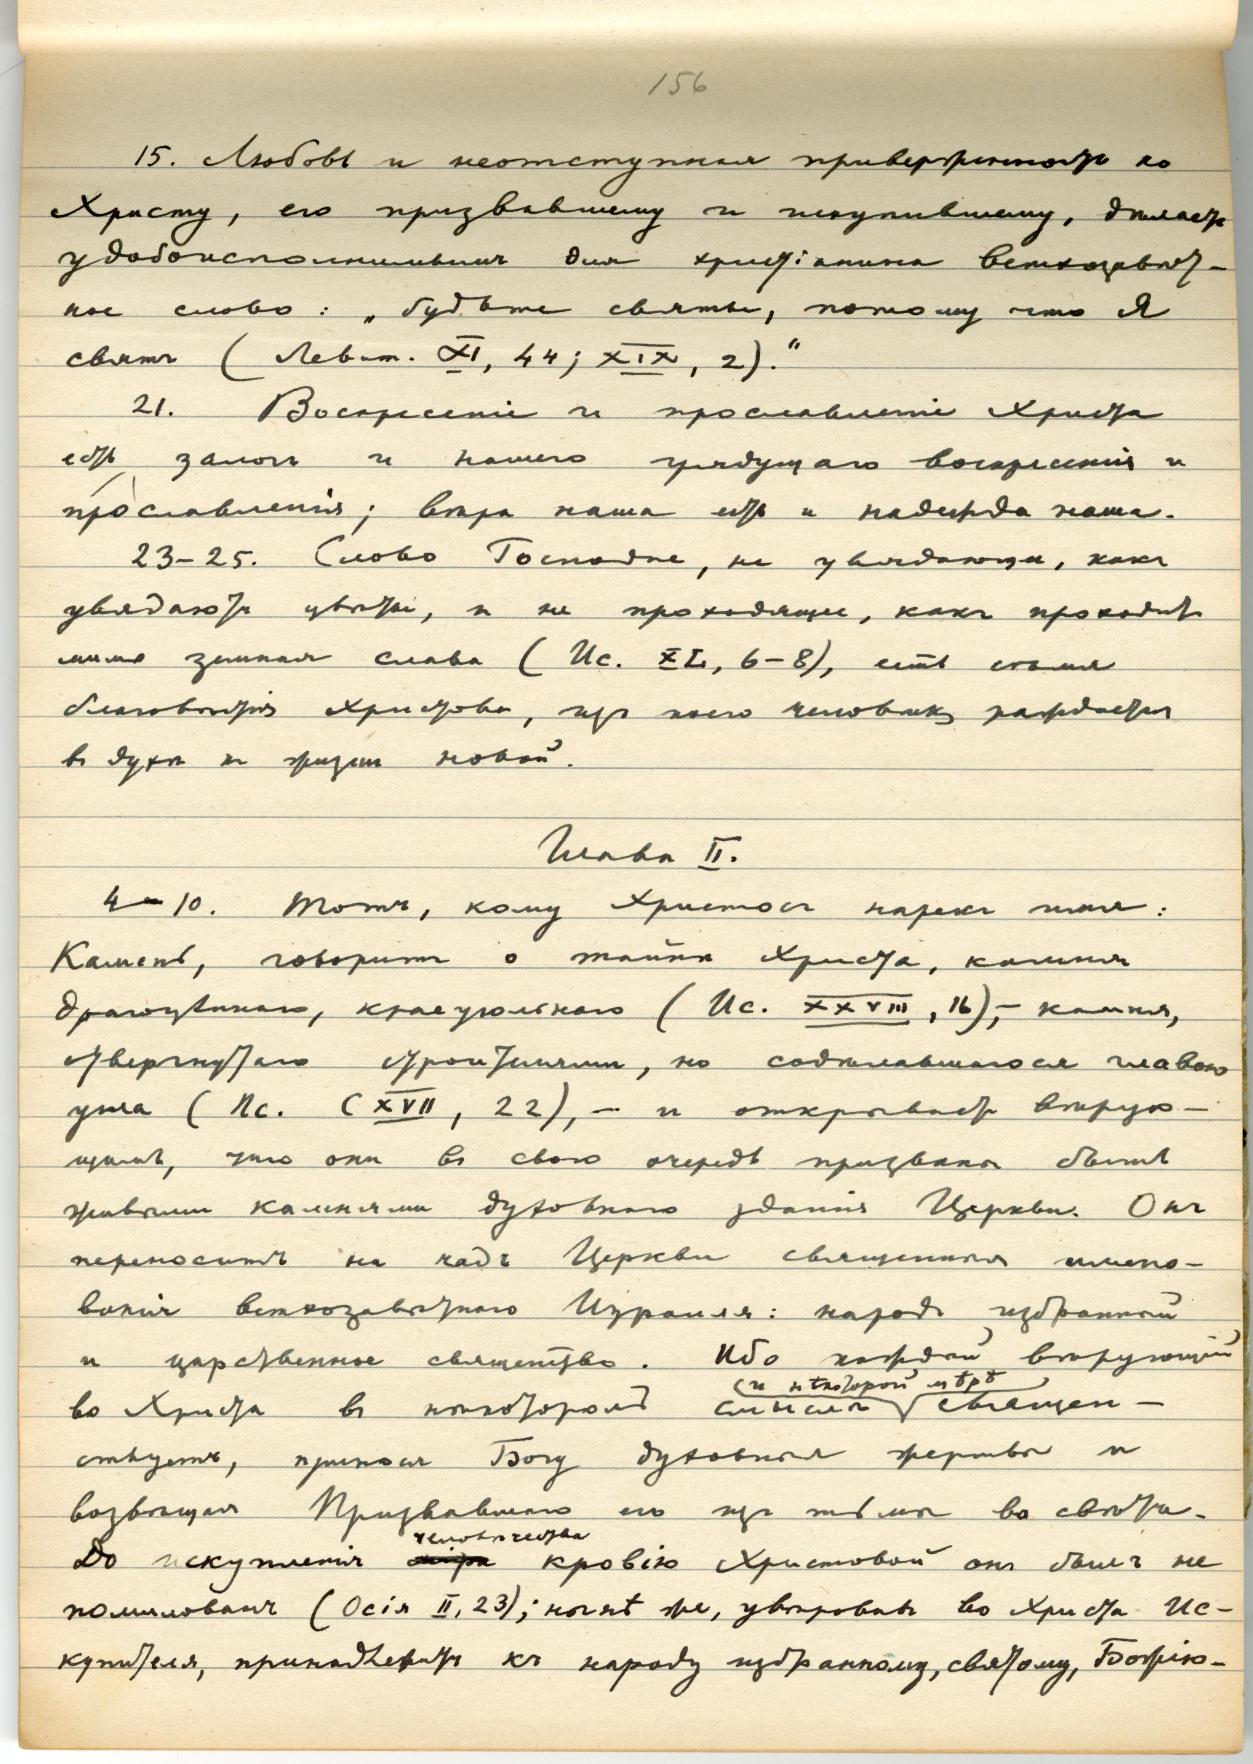 156
15. Любовь и неотступная приверженность ко
Христу, его призвавшему и искупившему, дѣлаетъ
удобоисполнимымъ для христіанина ветхозавѣт-
ное слово: „будьте святы, потому что Я
святъ (Левит. XI, 44; XIX, 2)."
21. Воскресеніе и прославленіе Христа
есть залогъ и нашего грядущаго воскресенія и
прославленія; вѣра наша есть и надежда наша.
23–25. Слово Господне, не увядающее, какъ
увядаютъ цвѣты, и не проходящее, какъ проходитъ
мимо земная слава (Ис. XL, 6–8), есть сѣмя
благовѣстія Христова, изъ коего человѣкъ рождается
въ духѣ къ жизни новой.
Глава II.
4–10. Тотъ, кому Христосъ нарекъ имя:
Камень, говоритъ о тайнѣ Христа, камня
драгоцѣннаго, краеугольнаго (Ис. XXVIII, 16),– камня,
отвергнутаго строителями, но содѣлавшагося главою
угла (Пс. CXVII, 22),– и открываетъ вѣрую-
щимъ, что они въ свою очередь призваны быть
живыми камнями духовнаго зданія Церкви. Онъ
переноситъ на чадъ Церкви священныя имено-
ванія ветхозавѣтнаго Израиля: народъ избранный
и царственное священство. Ибо каждый вѣрующій
(и нѣкоторой мѣрѣ
во Христа въ нѣкоторомъ смыслѣ священ-
ствуетъ, принося Богу духовныя жертвы и
возвѣщая Призвавшаго его изъ тьмы во свѣтъ.
человѣчества
До искупленія міра кровію Христовой онъ былъ не
помилованъ (Осія II, 23); нынѣ же, увѣровавъ во Христа Ис-
купителя, принадлежитъ къ народу избранному, святому, Божію–